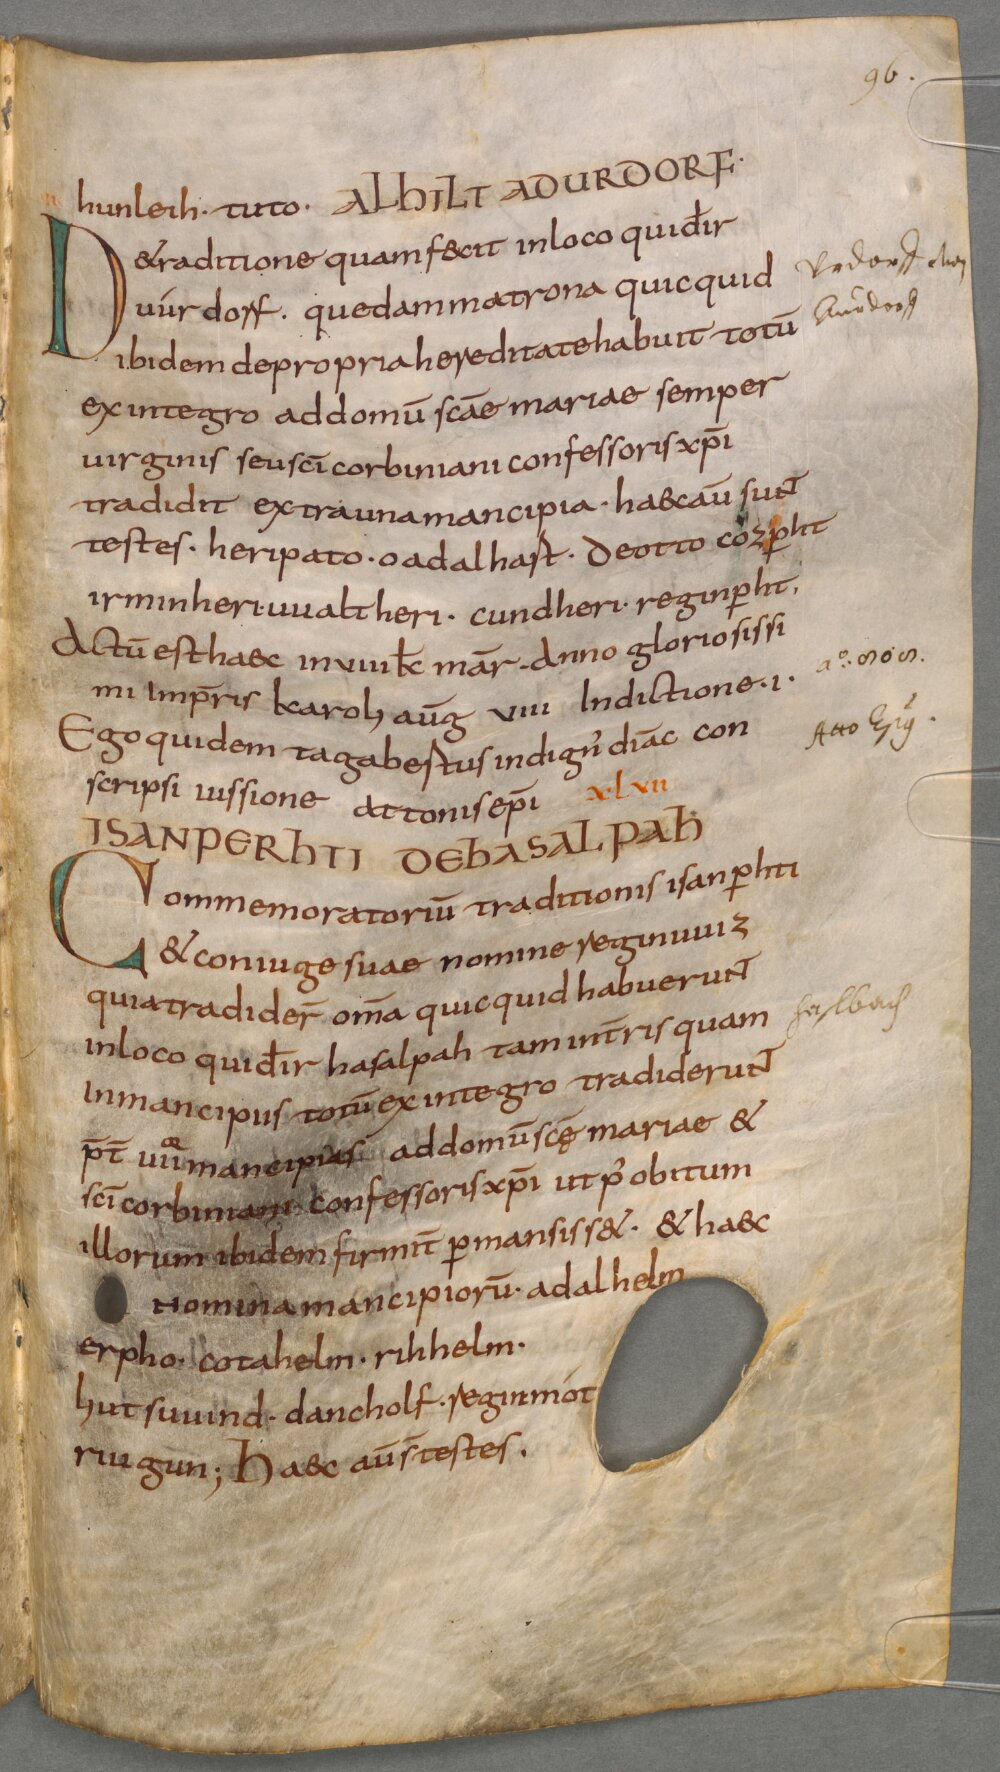 96.
hunleih· tuto· ALHILT ADURDORF·
D&raditione quam fecit in loco quid̄ir
uúrdorf. quedam matrona quicquid
ibidem de propria hereditate habuit totū
ex integro ad domū scāe mariae semper
uirginis seu scī corbiniani confessoris xp̄i
tradidit extra una mancipia· haec aū sunt̄
testes· heripato· oadalhart· deotto cozp̄ht
irminheri· uualtheri· cundheri· reginp̄ht·
Actū est haec in viiii kł mār· Anno gloriosissi
mi Imp̄ris karoli aūg viii Indictione·i·
a°. 808.
Ego quidem tagabertus indign' diāc con
scripsi iussione attonis ep̄i xlvii
Atto
ISANPERHTI DEHASALPAH
Commemoratoriū traditionis isanp̄hti
& coniuge suae nomine reginuuiz
quia tradider̄ om̄a quicquid habuerunt̄
in loco quid̄ir hasalpah tam in t̄ris quam
haslbach
In mancipiis totū ex integro tradiderunt̄
p̄t̄ uii mancipias ad domū scę mariae &
scī corbiniani confessoris xp̄i ut p' obitum
illorum ibidem firmit̄ p̄mansiss&· & haec
nomina mancipiorū· adalhelm
erpho· cotahelm· rihhelm·
hutsuuind· dancholf· reginmot
riugun; Haec aūs̄ testes.